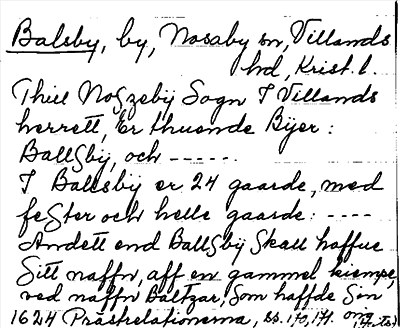 Balsby, by, Nosaby sn, Villands
hd, Krist. l.
Thiil Nogzebÿ Sogn I Villands
herrett, Er thuende Bÿer :
Ballgbÿ, och -----.
I Ballsbÿ er 24 gaarde, med
fester och helle gaarde: ----
Andett end Ballgbÿ Skall haffue
Sitt naffn, aff en gammel kiempe,
ved naffn Baltzar, Som haffde Sin
1624 Prästrelationerna, ss. 170, 171.